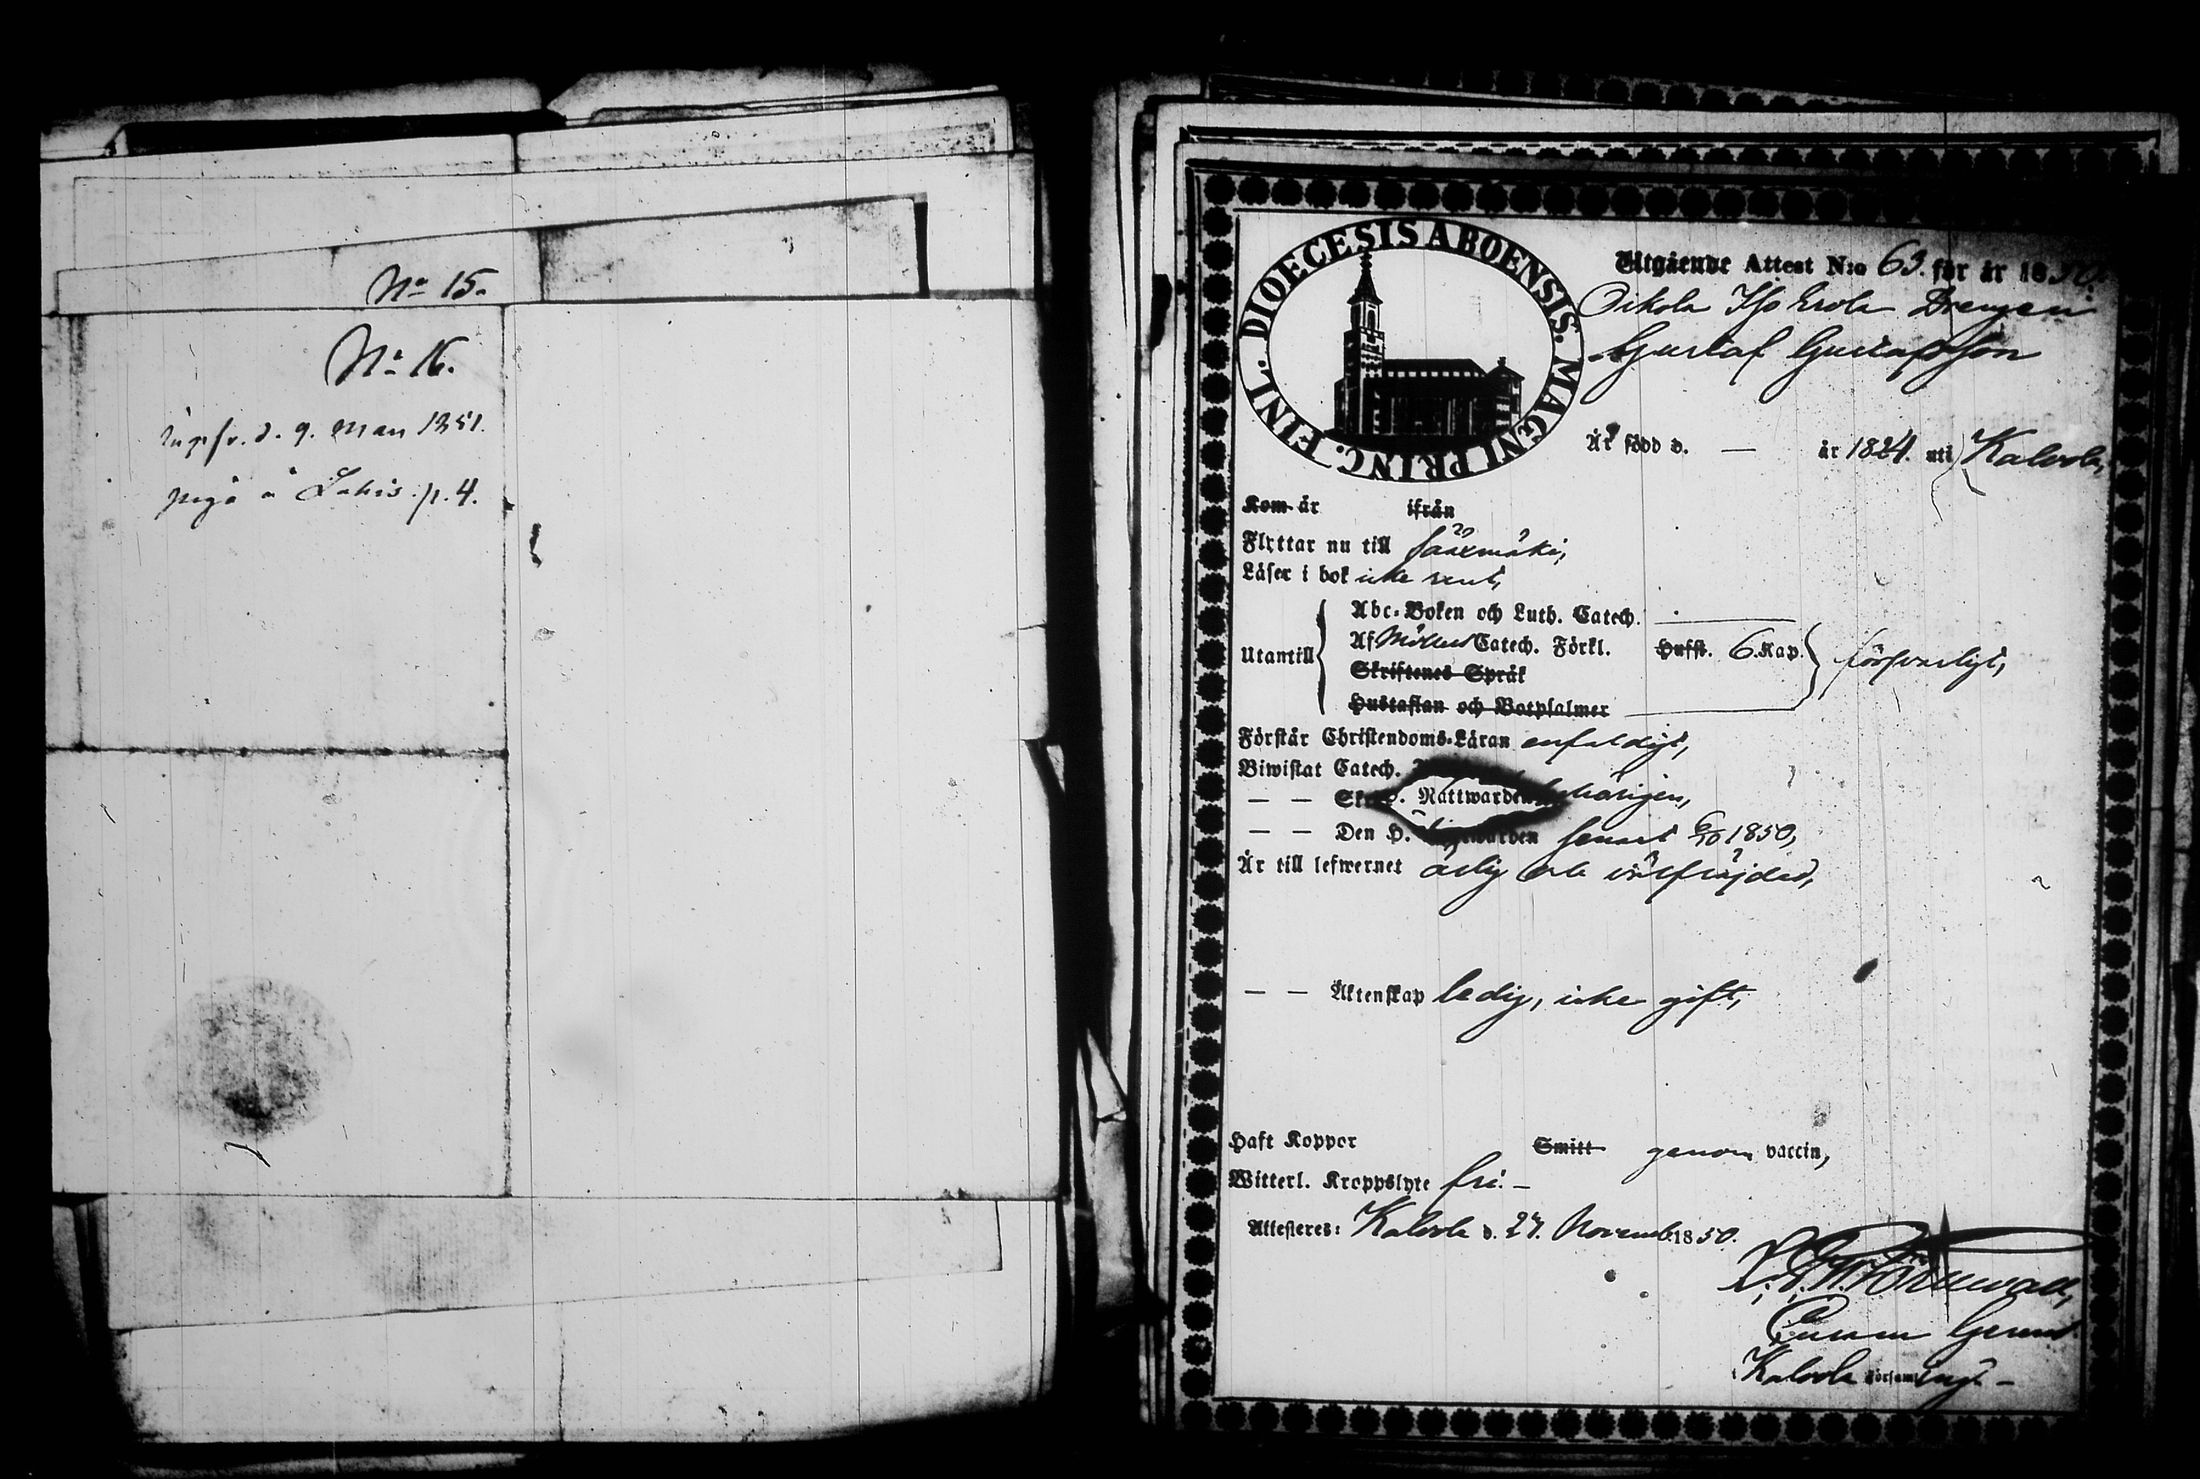 No 15.
No 16.
d. 9. Mars 1851.
p. 4.
DIOECESIS ABOENSIS. MAGNI PRINC. FINL.
Utgående Attest N:o 63. för år 1850.
Drengen
Gustaf Gustafsson
Är född d. — år 1824. uti Kalvola,
Kom år ifrån
Flyttar nu till Sääxmäki,
Läser i bok icke rent,
Abc-Boken och Luth. Catech.
Utantill Af Möllers Catech. Förkl. Hufst. 6. Kap. försvarligt,
Skriftenes Språk
Hustaflan och Botpsalmer
Förstår Christendoms-Läran enfaldigt,
Biwistat Catech.
— — Nattwarden behörigen,
— — Den H. senast 6/10 1850,
Är till lefwernet ärlig och välfräjdad,
— — Äktenskap ledig, icke gift,
Haft Koppor Smitt genom vaccin,
Witterl. Kroppslyte fri. —
Attesteras: Kalvola d. 27. Novemb. 1850.
Kalvola församling —